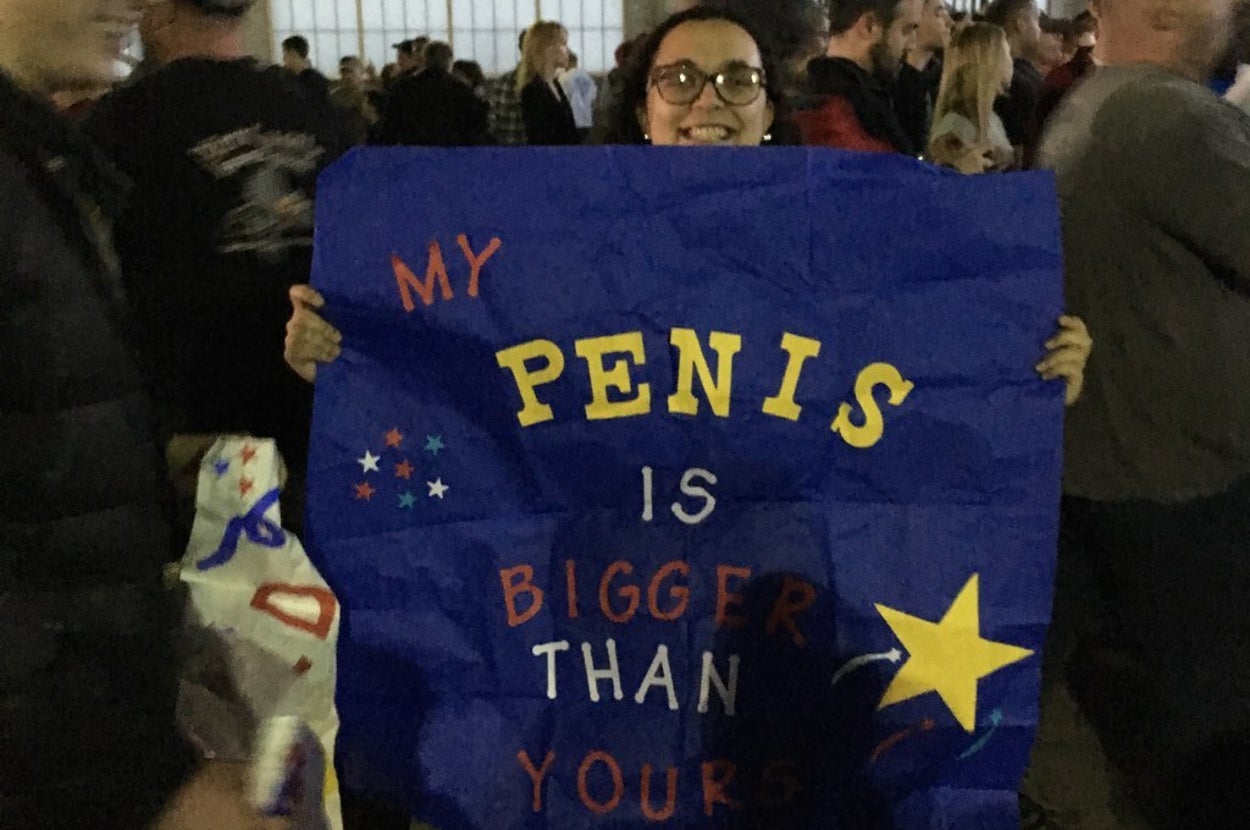 MY
PENIS
IS
BIGGER
THAN
YOURS